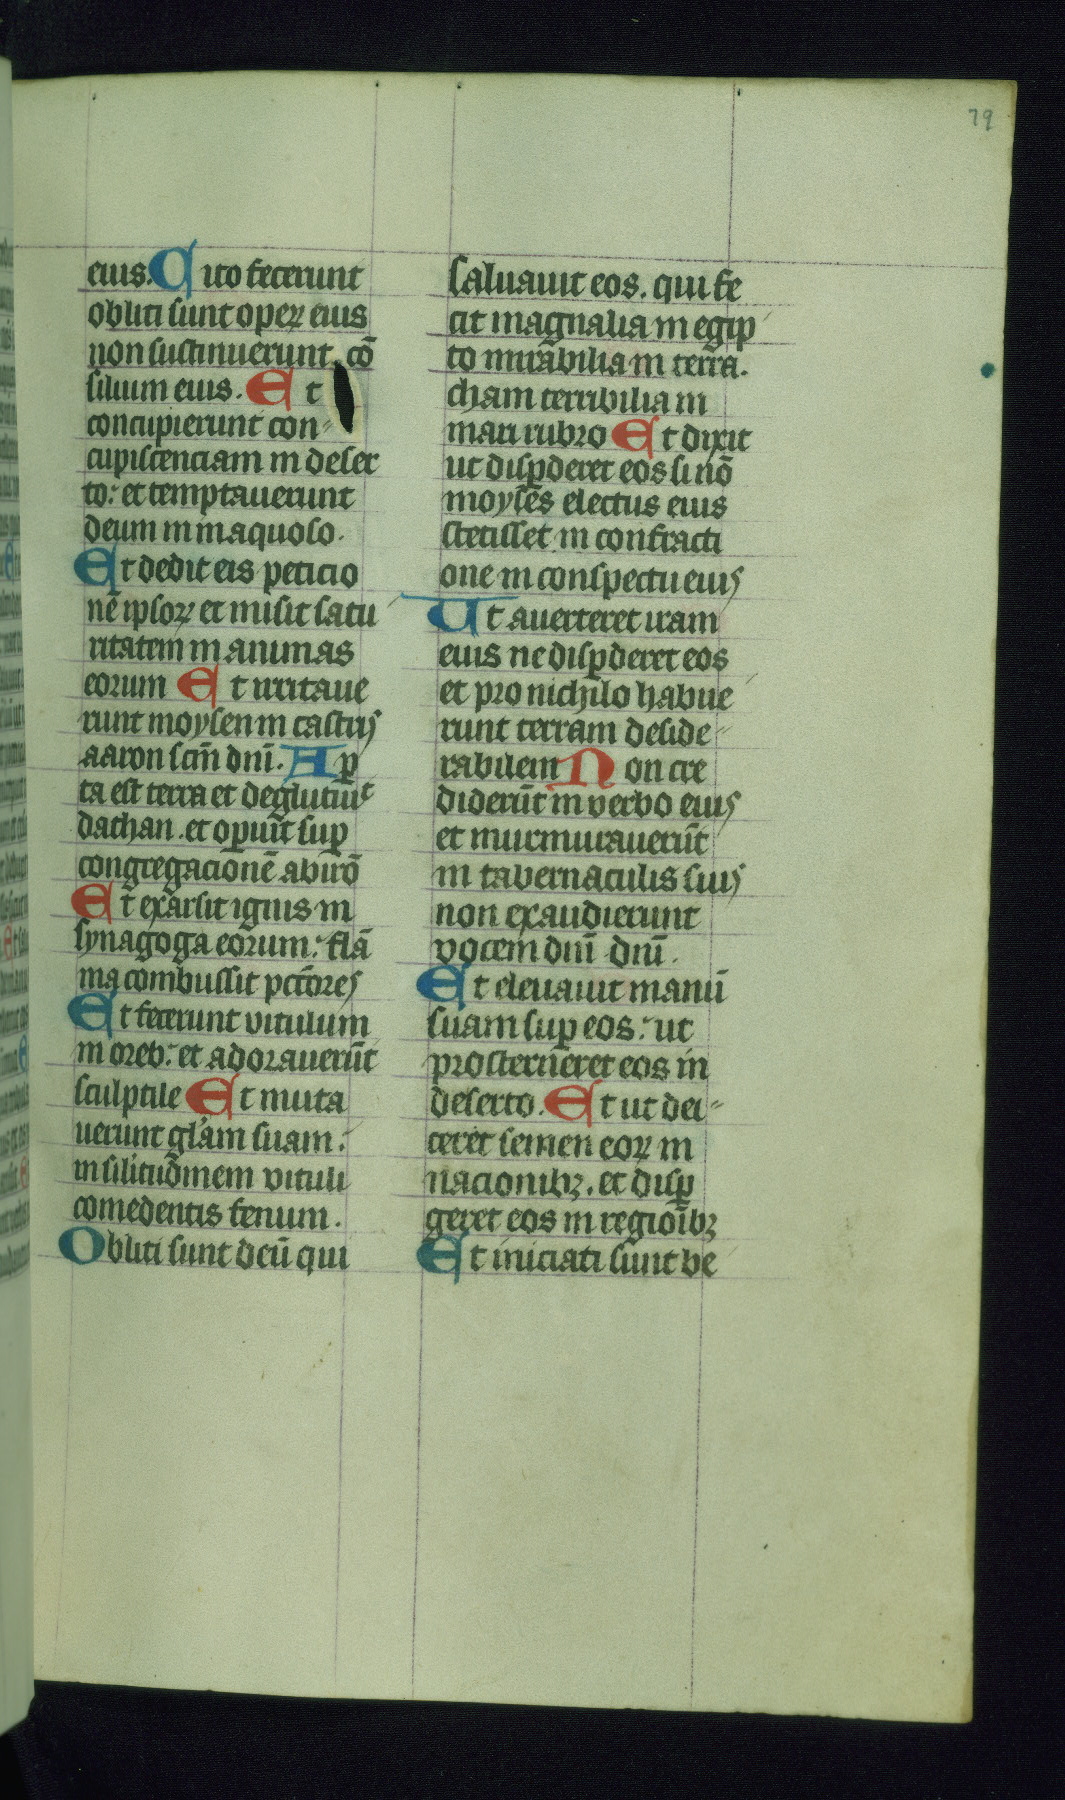 79
eius. Cito fecerunt
obliti sunt operꝝ eius
non sustinuerunt cō
silium eius. Et
concupierunt con-
cupiscenciam in deser
to: et temptauerunt
deum in inaquoso.
Et dedit eis peticio
nē ipsoꝝ et misit satu
ritatem in animas
eorum Et irritaue
runt moysen in castris
aaron scm̄ dnī. Ap̄
ta est terra et deglutiuit
dathan. et opuīt suꝑ
congregacionē abirō
Et exarsit ignis in
synagoga eorum: flā
ma combussit pctōres
Et fecerunt vitulum
in oreb: et adorauerūt
sculptile Et muta
uerunt glam̄ suam:
in silitudinem vituli
comedentis fenum.
Obliti sunt deū qui
saluauit eos. qui fe
cit magnalia in egip
to mirabilia in terra.
cham terribilia in
mari rubro Et dixit
ut disꝑderet eos si nō
moyses electus eius
stetisset in confracti
one in conspectu eius
Ut auerteret iram
eius ne disꝑderet eos
et pro nichilo habue
runt terram deside-
rabilem Non cre
diderūt in verbo eius
et murmurauerūt
in tabernaculis suis
non exaudierunt
vocem dnī dnī.
Et eleuauit manū
suam suꝑ eos: ut
prosterneret eos in
deserto. Et ut dei-
ceret semen eoꝝ in
nacionibꝫ. et disꝑ
geret eos in regioībꝫ
Et iniciati sunt be